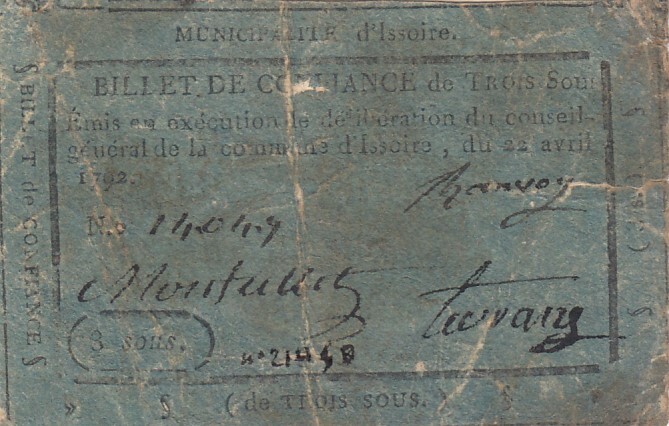 MUNICIPALITÉ d'Issoire.
BILLET DE CONFIANCE de TROIS Sous
Émis en exécution de délibération du conseil-
général de la commune d'Issoire, du 22 avril
1792.
N.o 14049
3 sous.
§ BILLET de CONFIANCE §
» § ( de TROIS SOUS. ) § »